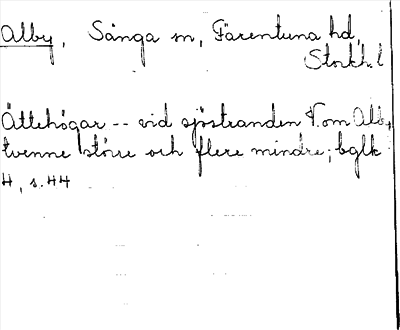 Alby, Sånga sn, Färentuna hd,
Stockh. l
Ättehögar -- vid sjöstranden V. om Alby,
tvenne större och flere mindre; bglk
4, s. 44